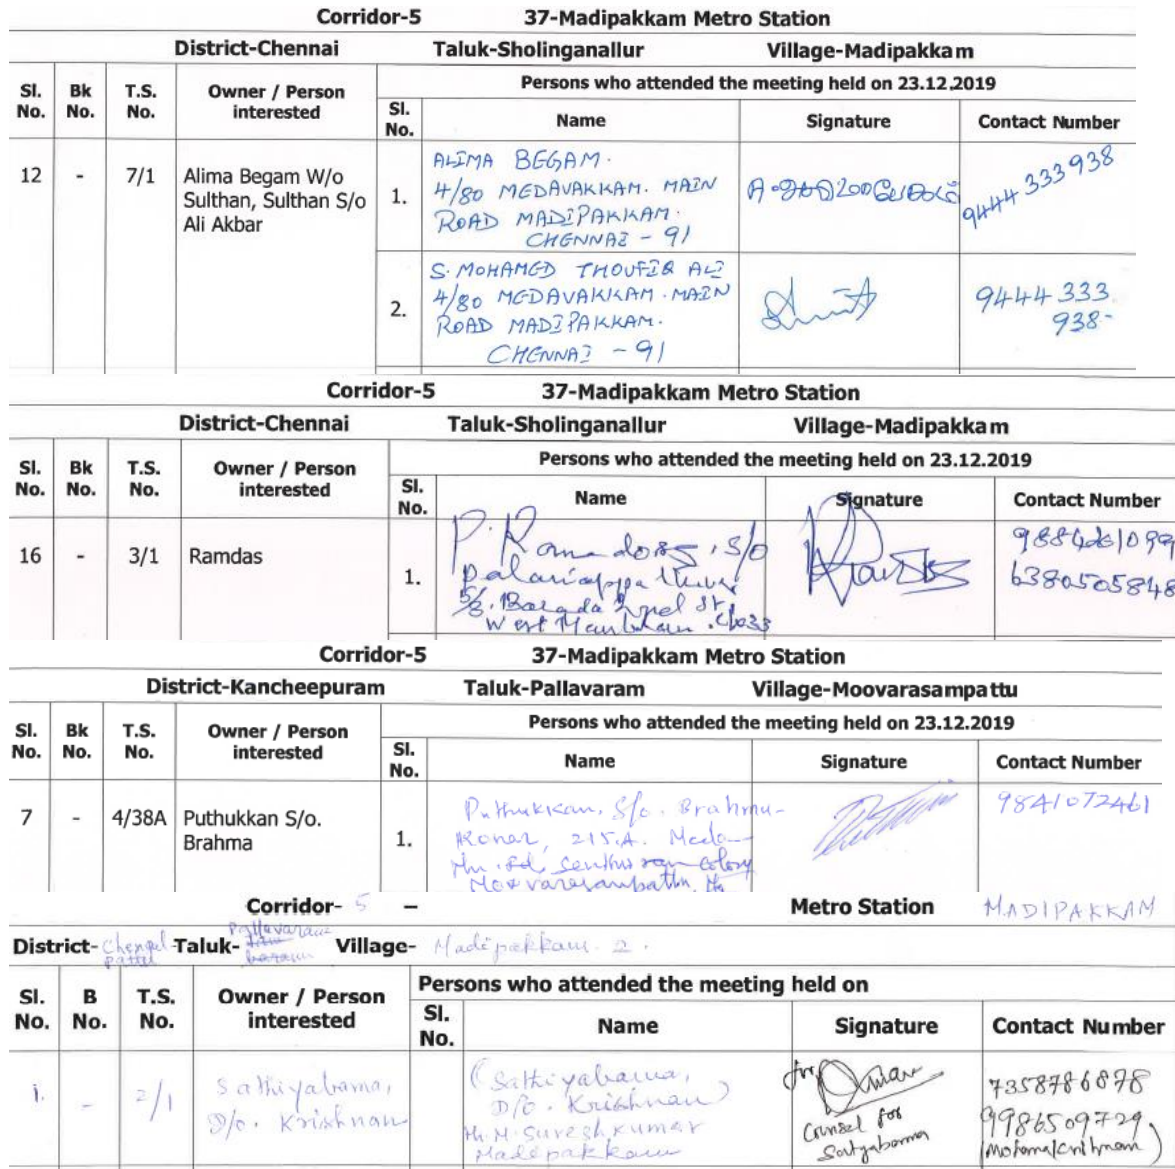 Corridor-5 37-Madipakkam Metro Station
District-Chennai Taluk-Sholinganallur Village-Madipakkam
Sl. No. Bk No. T.S. No. Owner / Person interested Persons who attended the meeting held on 23.12.2019
Sl. No. Name Signature Contact Number
12 - 7/1 Alima Begam W/o
Sulthan, Sulthan S/o
Ali Akbar
1. ALIMA BEGAM.
4/80 MEDAVAKKAM. MAIN
ROAD MADIPAKKAM.
CHENNAI - 91
9444 333938
2. S. MOHAMED THOUFIQ ALI
4/80 MEDAVAKKAM. MAIN
ROAD MADIPAKKAM.
CHENNAI - 91
9444 333
938-
Corridor-5 37-Madipakkam Metro Station
District-Chennai Taluk-Sholinganallur Village-Madipakkam
Sl. No. Bk No. T.S. No. Owner / Person interested Persons who attended the meeting held on 23.12.2019
Sl. No. Name Signature Contact Number
16 - 3/1 Ramdas
1. P. Ramadoss, S/o
West
6380505848
Corridor-5 37-Madipakkam Metro Station
District-Kancheepuram Taluk-Pallavaram Village-Moovarasampattu
Sl. No. Bk No. T.S. No. Owner / Person interested Persons who attended the meeting held on 23.12.2019
Sl. No. Name Signature Contact Number
7 - 4/38A Puthukkan S/o.
Brahma
1. Puthukkan, S/o. Brahmu-
Konar, 215.A.
Colony
9841072461
Corridor- 5 – Metro Station MADIPAKKAM
District- Chengal-
pattu
Taluk- Pallavaram
Village- Madipakkam. 2.
Sl. No. B No. T.S. No. Owner / Person interested Persons who attended the meeting held on
Sl. No. Name Signature Contact Number
1. - 2/1 Sathiyabama,
D/o. Krishnan
(Sathiyabama,
D/o. Krishnan)
Th. M. Sureshkumar
Madipakkam
for
Counsel for
Satyabama
7358786878
9986509729